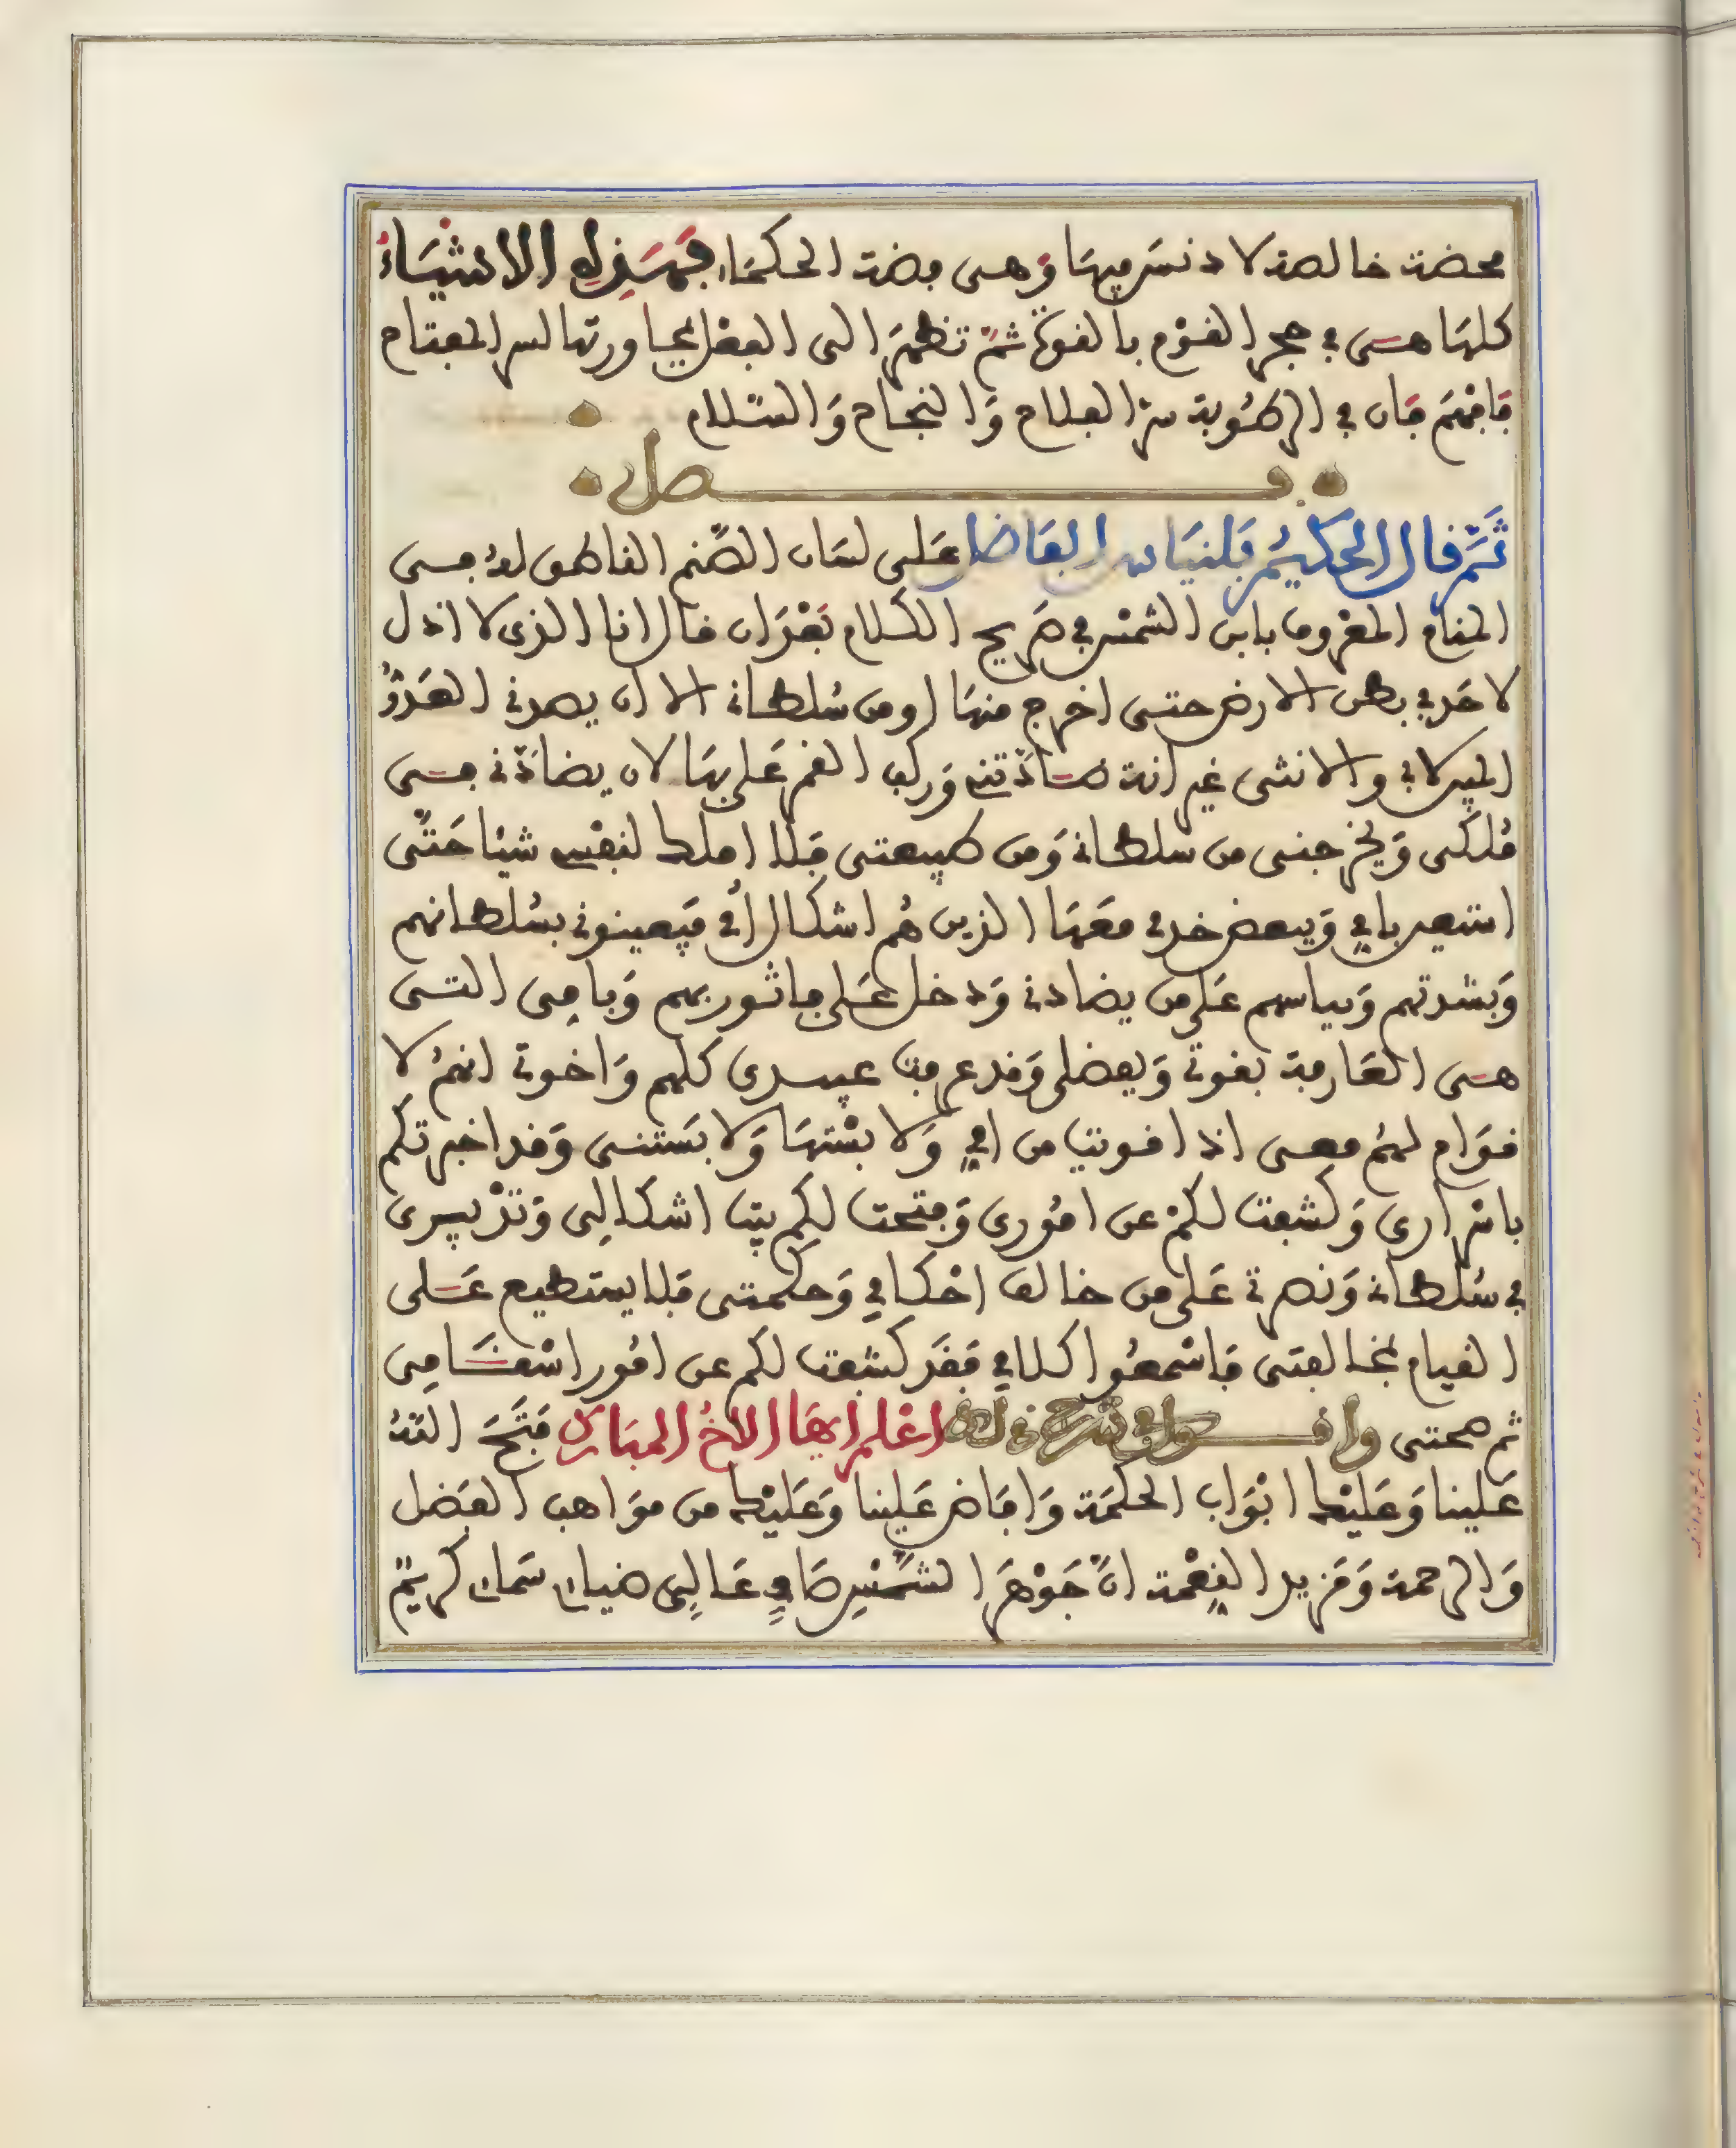 محضة خالصة لا دنس فيها وهى فضة الحكماء فهذه الاشياء
كلها هى في حجر القوم بالقوة ثم تظهر الى الفعل بمجاورتها لسر المفتاح
فافهم فان في الرطوبة سر الفلاح والنجاح والسلام
فصل
ثم قال الحكيم بلنياس الفاضل على لسان الصنم الناطق له في
المنام المعروف بابن الشمس في صريح الكلام بعد ان قال انا الذى لا اذل
لاحد في بطن الارض حتى اخرج منها ومن سلطانه الا ان يصدني العدو
والانثى غير انه وركب القمر عليها لان يضادني في
ملكى ويخرجنى من سلطانه ومن طبيعتى فلا املك لنفسي شيئا حتى
استعين بامي وببعض خدمي معها الذين هم اشكال أمي فيعينوني بسلطانهم
وبشدتهم وبباسهم على من يضادني ودخل على ما ثوربهم وبامى التى
هى العارفة بقوتي وبفضلى وقد عرفت عبيدى كلهم واخوتي انهم لا
قوام لهم معى اذا قويت من امي ولا بشتها ولا بستنى وقد اخبرتكم
باسرارى وكشفت لكم عن امورى وفتحت لكم بيت اشكالى وتدبيرى
في سلطاني ونصرتي على من خالف احكامي وحكمتى فلا يستطيع على
القيام بمخالفتى فاسمعوا كلامي فقد كشفت لكم عن امور اسقامى
ثم صحتى واقول في شرح ذلك اعلم ايها الاخ المبارك فتح الله
علينا وعليك ابواب الحكمة وافاض علينا وعليك من مواهب الفضل
والرحمة ومزيد النعمة ان جوهر الشمس صافي عالى ضياء سماء كريم